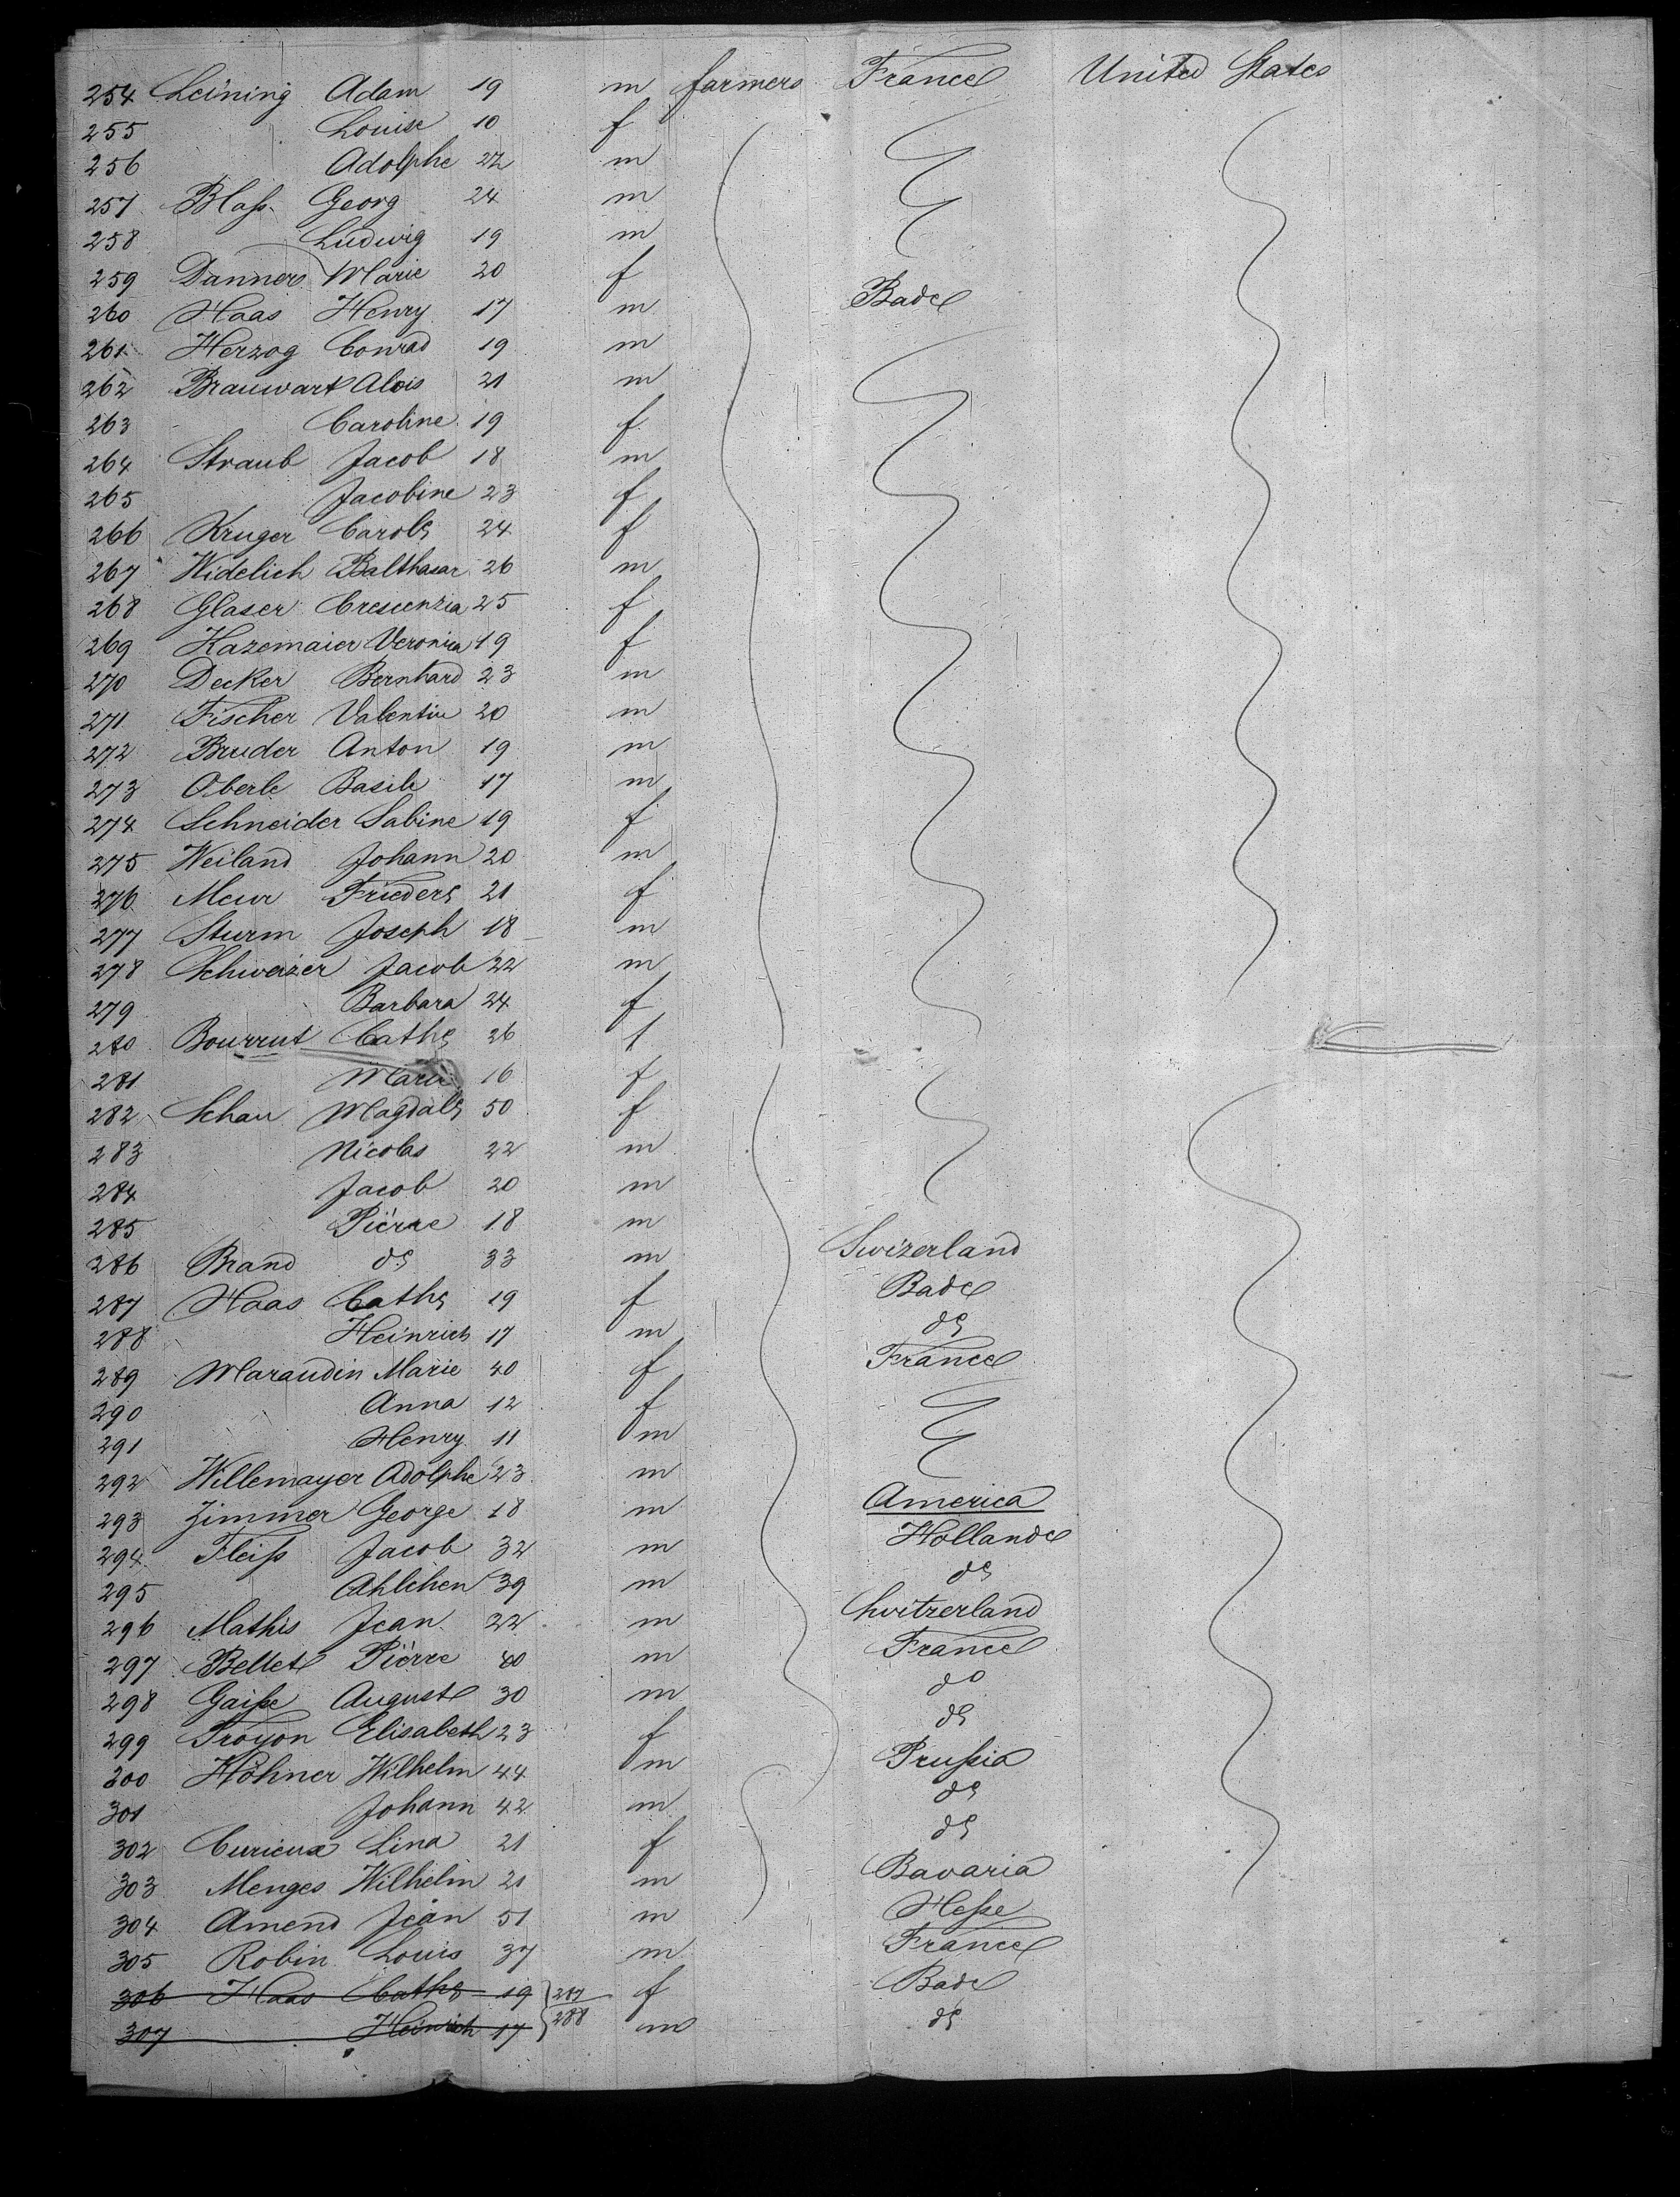 254 Leining Adam 19 m farmers France United States
255 Louise 10 f
256 Adolphe 22 m
257 Blaß Georg 24 m
258 Ludwig 19 m
259 Danner Marie 20 f
260 Haas Henry 17 m Bade
261 Herzog Conrad 19 m
262 Brauwart Alois 21 m
263 Caroline 19 f
264 Straub Jacob 18 m
265 Jacobine 23 f
266 Kruger Carole 24 f
267 Widelich Balthasar 26 m
268 Glaser Crescenzia 25 f
269 Hazemaier Veronica 19 f
270 Decker Bernhard 23 m
271 Fischer Valentin 20 m
272 Bruder Anton 19 m
273 Oberle Basile 17 m
274 Schneider Sabine 19 f
275 Weiland Johann 20 m
276 Frieder 21 f
277 Sturm Joseph 18 m
278 Schweizer Jacob 22 m
279 Barbara 24 f
280 Bourrut Cath 26 f
281 Marie 16 f
282 Schau Magdal 50 f
283 Nicolas 22 m
284 Jacob 20 m
285 Pierre 18 m
286 Brand do 33 m Swizerland
287 Haas Cath 19 f Bade
288 Heinrich 17 m do
289 Maraudin Marie 40 f France
290 Anna 12 f
291 Henry 11 m
292 Willemayer Adolphe 23 m
293 Zimmer George 18 m America
294 Fleiß Jacob 32 m Hollande
295 Ahlchen 39 m do
296 Mathis Jean 22 m Switzerland
297 Bellet Pierre 40 m France
298 Gaiße August 30 m do
299 Troyon Elisabeth 23 f do
300 Höhner Wilhelm 44 m Prußia
301 Johann 42 m do
302 Curieux Lina 21 f do
303 Menges Wilhelm 21 m Bavaria
304 Amend Jean 51 m Heße
305 Robin Louis 37 m France
306 Haas Cath 19 287 f Bade
307 Heinrich 17 288 m do